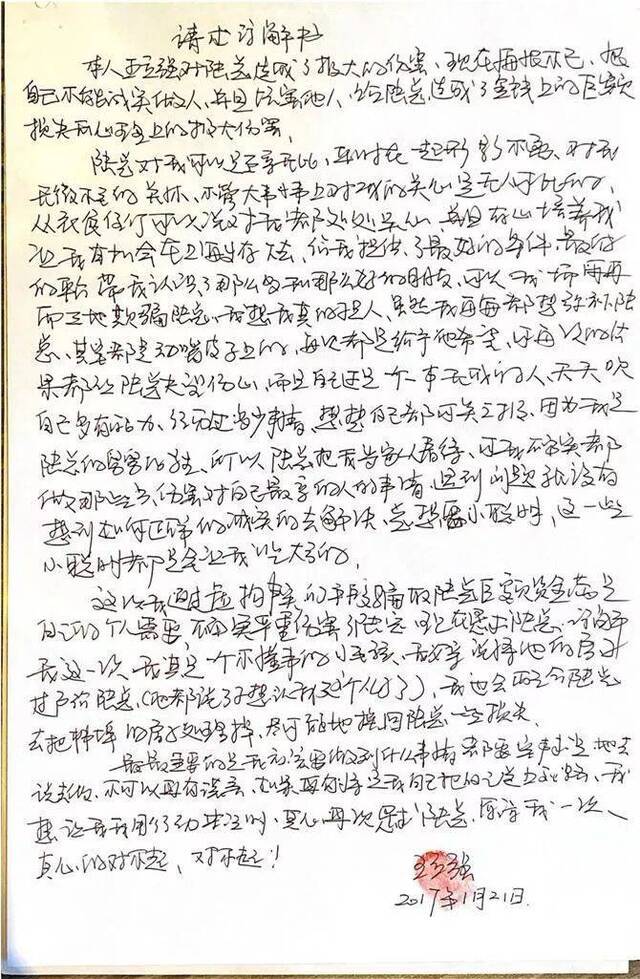 请求谅解书
本人王立强对陆总造成了极大的伤害、现在悔恨不已、恨
自己不能诚实做人、并且伤害他人、给陆总造成了金钱上的巨额
损失和心灵上的极大伤害。
陆总对我可以是恩享无比、平时在一起形影不离、对我
无微不至的关怀、不管大事小事上对我的关心是无人可比的、
从衣食住行可以说对我都处处关心、并且有心培养我
让我有机会在上海生存下去、给我提供了最好的条件、最好
的平台带我认识了那么多和那么好的朋友、可以我却再再
而三地欺骗陆总、我想我真的不是人、虽然我每每都想弥补陆
总、其实都是动嘴皮子上的、每次都是给予他希望、可每次的结
果都让陆总失望伤心、而且自己还是个一事无成的人、天天吹
自己多有能力、经历过多少事情、想想自己都可笑之极、因为我是
陆总的舅舅的学生、所以陆总把我当家人看待、可我不但都
做那些伤害对自己最亲的人的事情、遇到问题我没有
想到如何正确的诚实的去解决、总想耍小聪明、这一些
小聪明都是会让我吃大亏的。
这次我通过虚构事实的手段骗取陆总巨额资金都是
自己的个人需要、确实严重伤害了陆总 现在恳求陆总、原谅
我这一次 我真是一个不懂事的小孩、我母亲选择她的房子
过户给陆总、(她都说了不想认我这个儿子了)、我也会配合陆总
去把蚌埠的房子处理掉、尽可能地挽回陆总一些损失。
最最重要的是我无论做到什么事情都要实事求是地去
说去做、不可以再有谎言、如果再有谎言我自己把自己送去公安、我
想让我用行动来证明、真心再次恳求陆总、原谅我一次、
真心的对不起、对不起!
王立强
2017年1月21日.